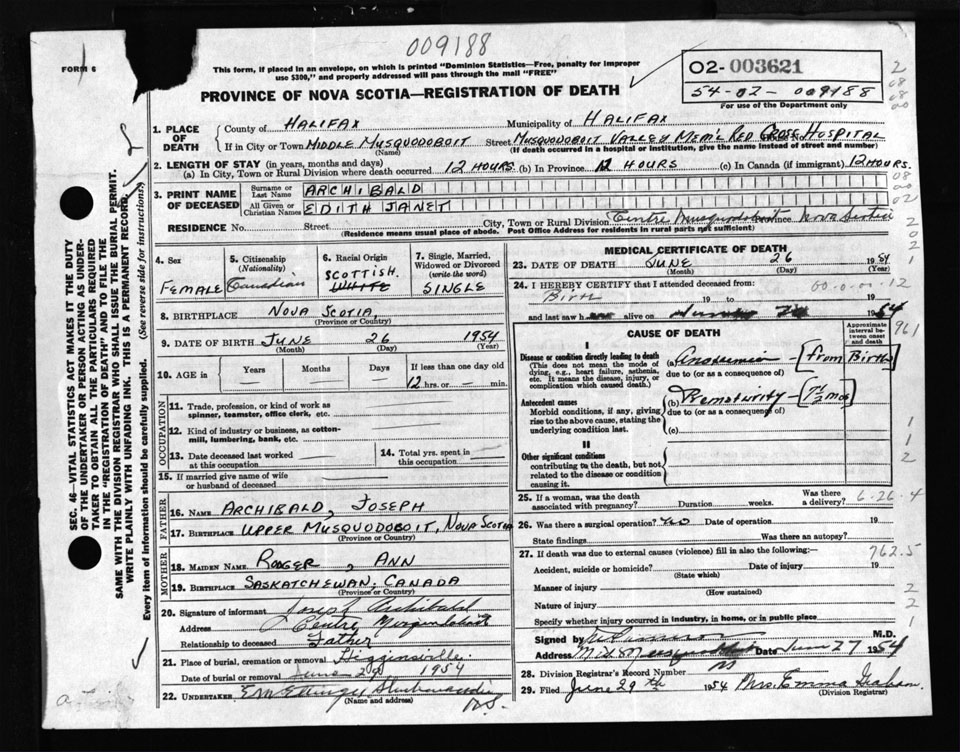 009188
FORM 6
This form, if placed in an envelope, on which is printed "Dominion Statistics—Free, penalty for improper
use $300," and properly addressed will pass through the mail "FREE"
02-003621
54-02-009188
For use of the Department only
PROVINCE OF NOVA SCOTIA—REGISTRATION OF DEATH
1. PLACE OF DEATH
County of HALIFAX Municipality of HALIFAX
If in City or Town MIDDLE MUSQUODOBOIT Street MUSQUODOBOIT VALLEY MEM'L RED CROSS HOSPITAL
(Name) (If death occurred in a hospital or institution, give the name instead of street and number)
2. LENGTH OF STAY (in years, months and days)
(a) In City, Town or Rural Division where death occurred 12 HOURS (b) In Province 12 HOURS (c) In Canada (if immigrant) 12 HOURS.
3. PRINT NAME OF DECEASED
Surname or Last Name ARCHIBALD
All Given or Christian Names EDITH JANET
RESIDENCE No. Street City, Town or Rural Division Centre Musquodoboit Province Nova Scotia
(Residence means usual place of abode. Post Office Address for residents in rural parts not sufficient)
4. Sex FEMALE
5. Citizenship (Nationality) Canadian
6. Racial Origin SCOTTISH. WHITE
7. Single, Married, Widowed or Divorced (write the word) SINGLE
8. BIRTHPLACE NOVA SCOTIA,
(Province or Country)
9. DATE OF BIRTH JUNE 26 1954
(Month) (Day) (Year)
10. AGE in Years Months Days If less than one day old
12 hrs. or — min.
OCCUPATION
11. Trade, profession, or kind of work as spinner, teamster, office clerk, etc.
12. Kind of industry or business, as cotton-mill, lumbering, bank, etc.
13. Date deceased last worked at this occupation
14. Total yrs. spent in this occupation
15. If married give name of wife or husband of deceased
FATHER
16. NAME ARCHIBALD, JOSEPH
17. BIRTHPLACE UPPER MUSQUODOBOIT, NOVA SCOTIA
(Province or Country)
MOTHER
18. MAIDEN NAME RODGER, ANN
19. BIRTHPLACE SASKATCHEWAN, CANADA
(Province or Country)
20. Signature of informant Joseph Archibald
Address Centre Musquodoboit
Relationship to deceased Father
21. Place of burial, cremation or removal Higginsville.
Date of burial or removal June 29 1954
22. UNDERTAKER
(Name and address)
N.S.
MEDICAL CERTIFICATE OF DEATH
23. DATE OF DEATH JUNE 26 1954
(Month) (Day) (Year)
24. I HEREBY CERTIFY that I attended deceased from:
Birth 19 to 19
and last saw h alive on 1954
CAUSE OF DEATH
Approximate interval between onset and death
I
Disease or condition directly leading to death
(This does not mean the mode of dying, e.g., heart failure, asthenia, etc. It means the disease, injury, or complication which caused death.)
(a) — [From Birth]
due to (or as a consequence of)
Antecedent causes
Morbid conditions, if any, giving rise to the above cause, stating the underlying condition last.
(b) Prematurity — [7½ mos]
due to (or as a consequence of)
(c)
II
Other significant conditions
contributing to the death, but not related to the disease or condition causing it.
25. If a woman, was the death associated with pregnancy? Duration weeks. Was there a delivery?
6-26-4
26. Was there a surgical operation? Date of operation 19
State findings Was there an autopsy?
27. If death was due to external causes (violence) fill in also the following:—
762.5
Accident, suicide or homicide? Date of injury 19
(State which)
Manner of injury
(How sustained)
Nature of injury
Specify whether injury occurred in industry, in home, or in public place
Signed by M.D.
Address Date June 27 1954
28. Division Registrar's Record Number
29. Filed June 29th 1954 Mrs. Emma Graham.
(Division Registrar)
SEC. 46—VITAL STATISTICS ACT MAKES IT THE DUTY
OF THE UNDERTAKER OR PERSON ACTING AS UNDER-
TAKER TO OBTAIN ALL THE PARTICULARS REQUIRED
IN THE "REGISTRATION OF DEATH" AND TO FILE THE
SAME WITH THE DIVISION REGISTRAR WHO SHALL ISSUE THE BURIAL PERMIT.
WRITE PLAINLY WITH UNFADING INK. THIS IS A PERMANENT RECORD.
Every item of information should be carefully supplied. (See reverse side for instructions)